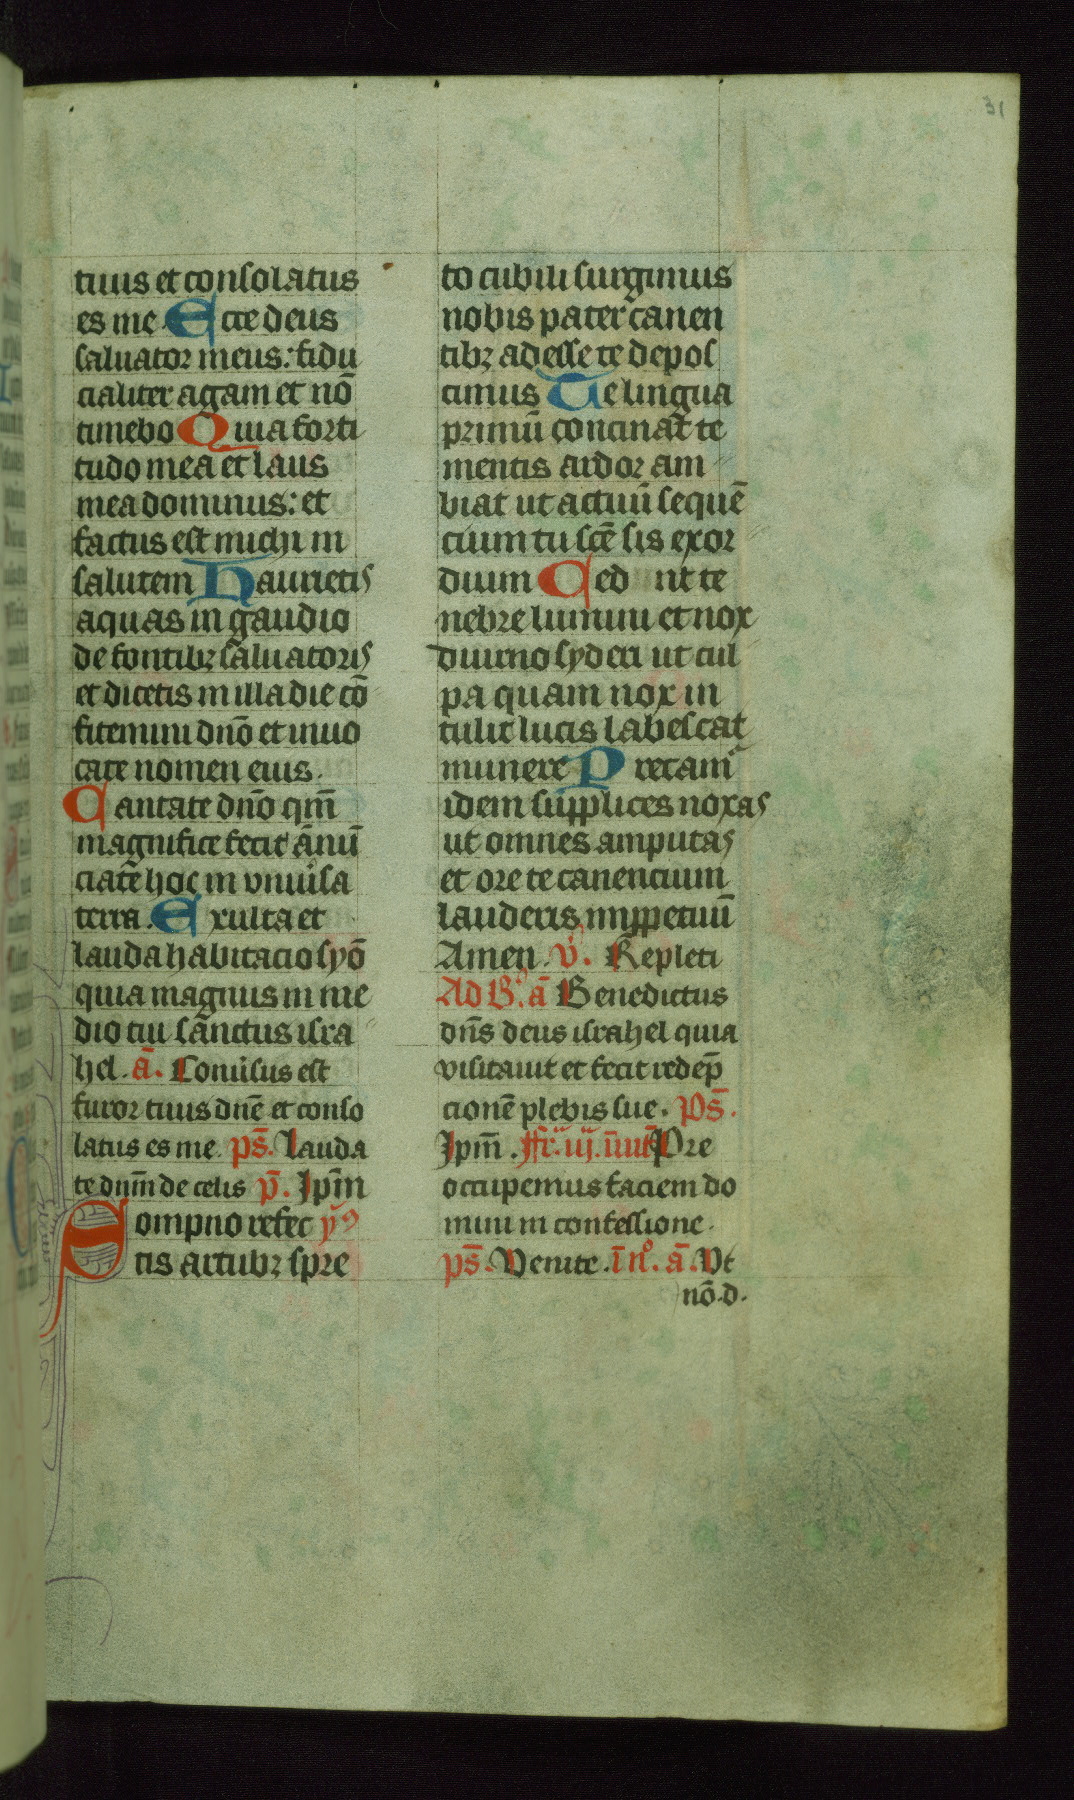 31
tuus et consolatus
es me Ecce deus
saluator meus: fidu
cialiter agam et nō
timebo Quia forti
tudo mea et laus
mea dominus: et
factus est michi in
salutem Haurietis
aquas in gaudio
de fontibꝫ saluatoris
et dicetis in illa die cō
fitemini dn̄o et inuo
cate nomen eius.
Cantate dn̄o qm̄
magnifice fecit ānū
ciate hoc in vniūsa
terra. Exulta et
lauda habitacio syō
quia magnus in me
dio tui sānctus isra
hel. ā. Conuīsus est
furor tuus dn̄e et conso
latus es me. ps̄. Lauda
te dnm̄ de celis p̄. Ipm̄
Sompno refec yꝰ
tis artubꝫ spre
to cubili surgimus
nobis pater canen
tibꝫ adesse te depos
cimus Te lingua
primū concinat te
mentis ardor am
biat ut actuū sequē
cium tu sc̄e sis exor
dium Ced nt te
nebre lumini et nox
diurno syderi ut cul
pa quam nox in
tulit lucis labescat
munere Precam̄
idem supplices noxas
ut omnes amputas
et ore te canencium
lauderis in ꝑpetuū
Amen. v̊. Repleti
Ad B᷎. ā Benedictus
dn̄s deus israhel quia
visitauit et fecit redēp
cionē plebis sue. Ps̄.
Ipm̄. ffr̄. iij. īuit̄ Pre
occupemus faciem do
mini in confessione.
ps̄. Venite. ī n̊. ā. Vt
nō. d.